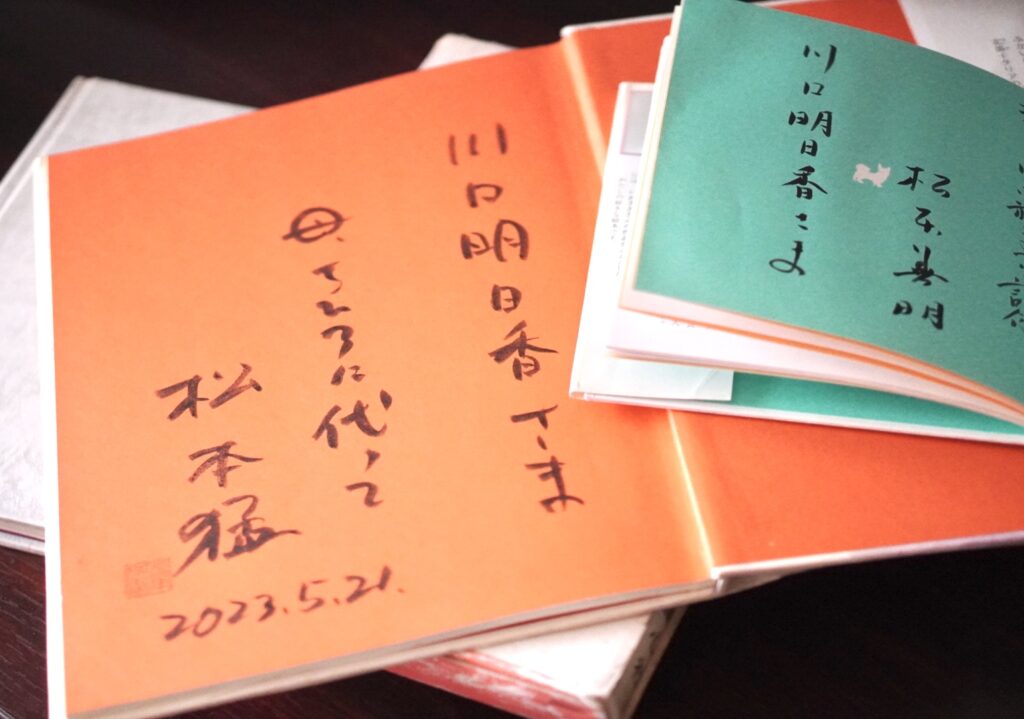 川口明日香さま
母、ちひろに代って
松本猛
2023.5.21.
川口明日香さま
松本善明